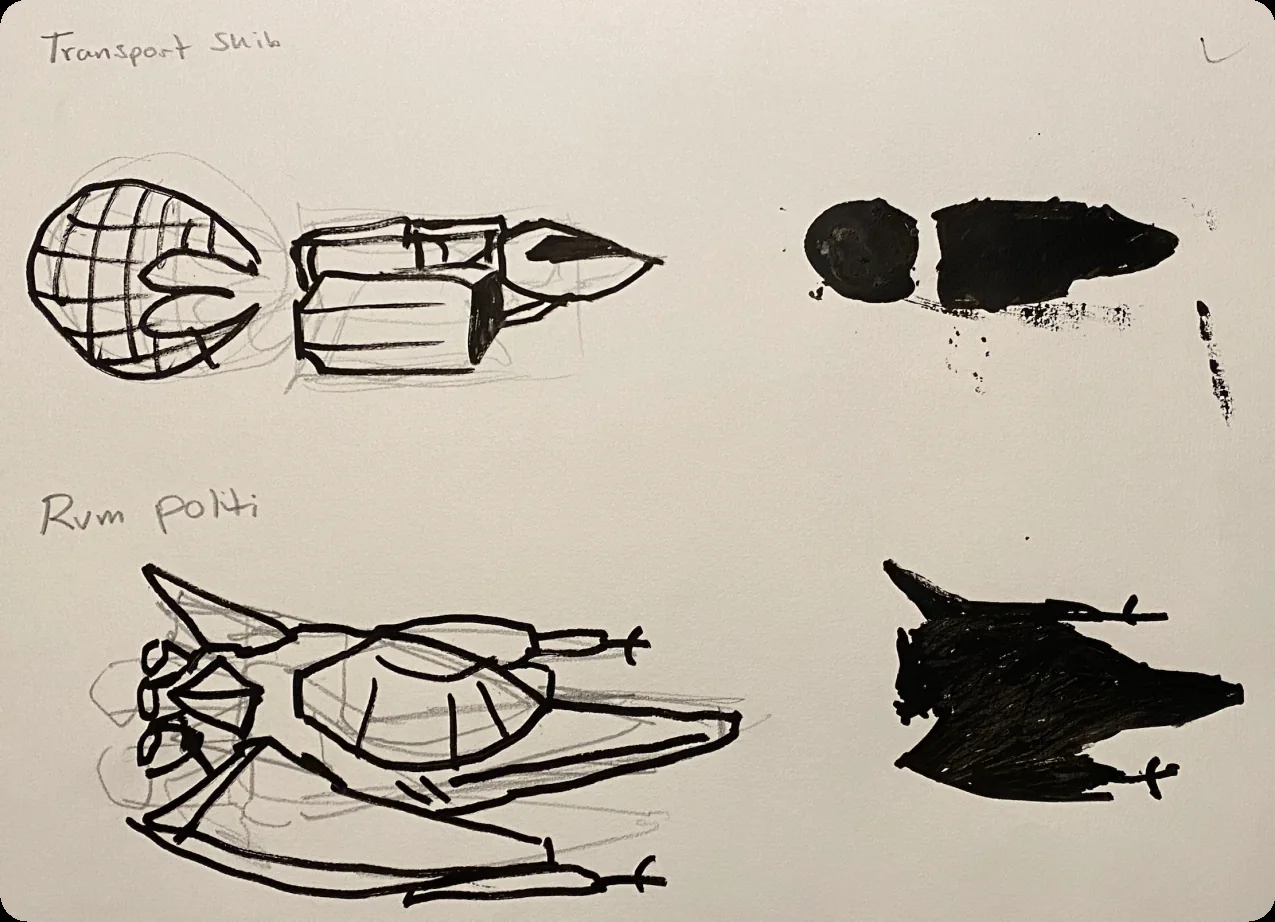 Transport Skib
Rum politi